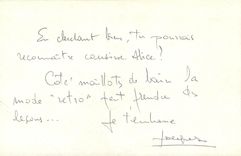 En cherchant bien, tu pourrais
reconnaître cousine Alice !
Côté maillots de bain la
mode "rétro" peut prendre des
leçons... Je t'embrasse
Jacques